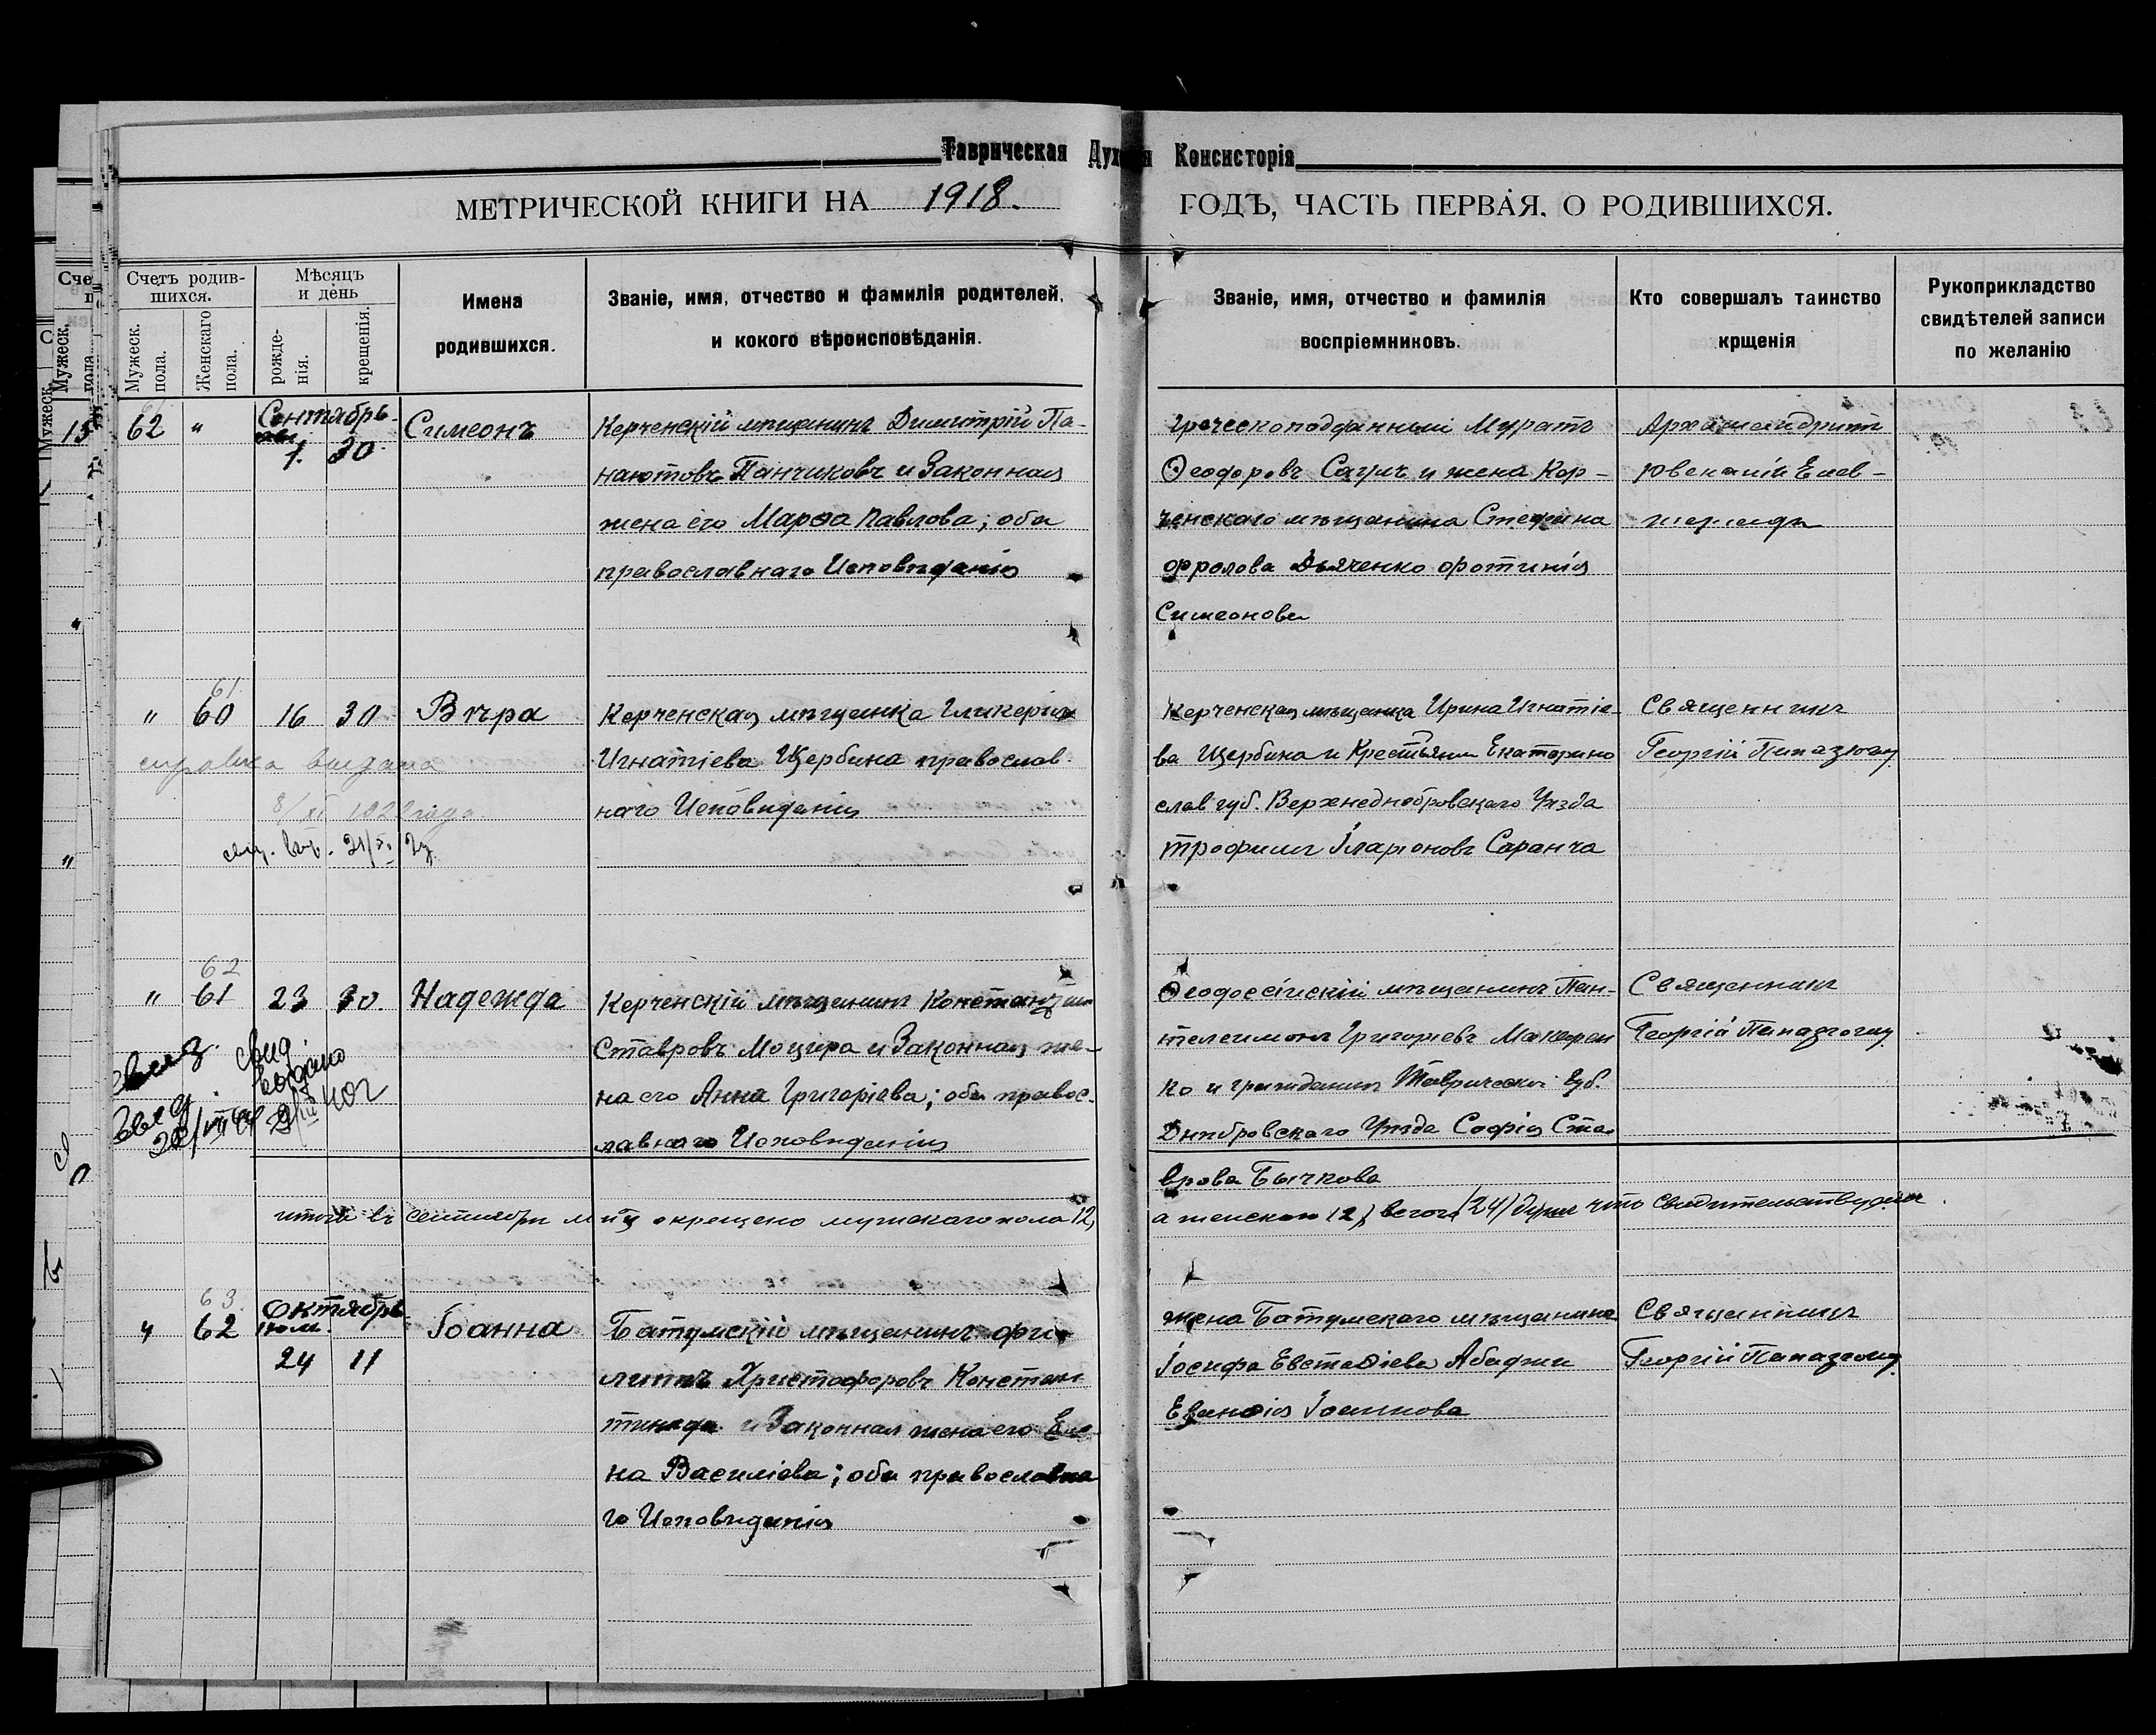 Таврическая Дух я Консисторія
МЕТРИЧЕСКОЙ КНИГИ НА 1918. ГОДЪ, ЧАСТЬ ПЕРВАЯ, О РОДИВШИХСЯ.
Счетъ родив-
шихся.
Мужеск.
пола.
Женскаго
пола.
Мѣсяцъ
и день
рожде-
нія.
крещенія.
Имена
родившихся.
Званіе, имя, отчество и фамилія родителей,
и кокого вѣроисповѣданія.
Званіе, имя, отчество и фамилія
воспріемниковъ.
Кто совершалъ таинство
крщенія
Рукоприкладство
свидѣтелей записи
по желанію
15
62 "
Сентябрь
авг.
1. 30.
Симеонъ
Керченскій мѣщанинъ Димитрій Па-
наютовъ Панчиковъ и Законная
жена его Марѳа Павлова; оба
православнаго Исповѣданія
Греческоподданный Муратъ
Ѳеодоровъ Сацикъ и жена Кер-
ченскаго мѣщанина Стефана
Фролова Дьяченко Фотинія
Симеонова
Архимандритъ
Ювеналій
61
" 60 16 30 Вѣра
справка выдана
8/XI 1922 года.
Керченская мѣщанка Гликерія
Игнатіева Щербина православ
наго Исповѣданія
Керченская мѣщанка Ирина Игнатіе-
ва Щербина и Крестьянин Екатерино
слав губ. Верхнеднѣпровскаго Уѣзда
Трофимъ Іларіоновъ Саранча
Священникъ
Георгій
62
" 61 23 30. Надежда
свид
выдано
Керченскій мѣщанинъ Константин
Ставровъ Моцира и Законная же-
на его Анна Григоріева; оба правос-
лавнаго Исповѣданія
Ѳеодосійскій мѣщанинъ Пан-
телеимонъ Григоріевъ Макарен
ко и гражданинъ Таврической Губ.
Днѣпровскаго Уѣзда Софія Ста
врова Бычкова
Священникъ
Георгій
итого въ сентябрѣ м цѣ окрещено мужскаго пола 12,
а женскаго 12, всего (24) души что свидѣтельствуемъ.
63.
" 62
Октябрь
іюль.
24 11
Іоанна
Батумскій мѣщанинъ Фи-
липпъ Христофоровъ Констан
тиниди и Законная жена его Еле-
на Василіева; оба православна
го Исповѣданія
жена Батумскаго мѣщанина
Іосифа Евстаѳіева Абаджи
Евѳимія Іоакимова
Священникъ
Георгій